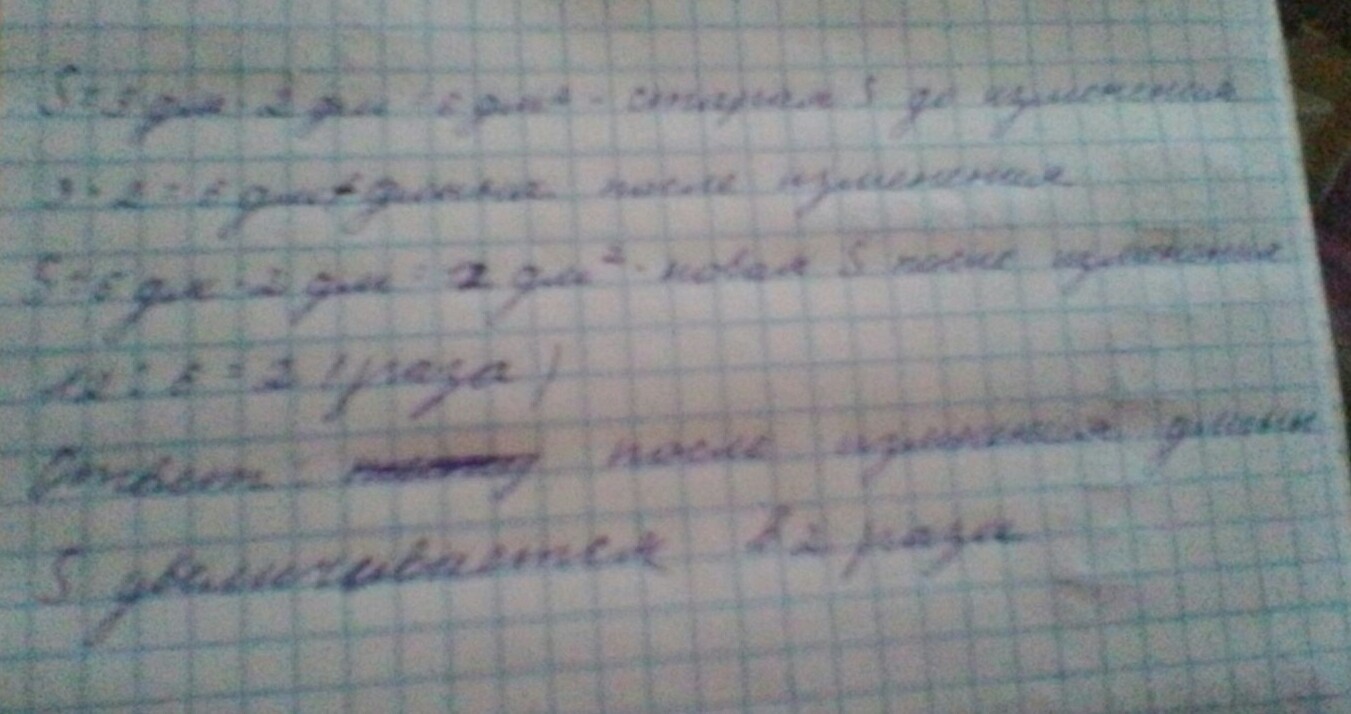 S = 3 дм · 2 дм = 6 дм² - старая S до изменения
3 · 2 = 6 дм - длина после изменения
S = 6 дм · 2 дм = дм² - новая S после изменения
12 : 6 = 2 (раза)
Ответ: после изменения длины
S увеличивается в 2 раза